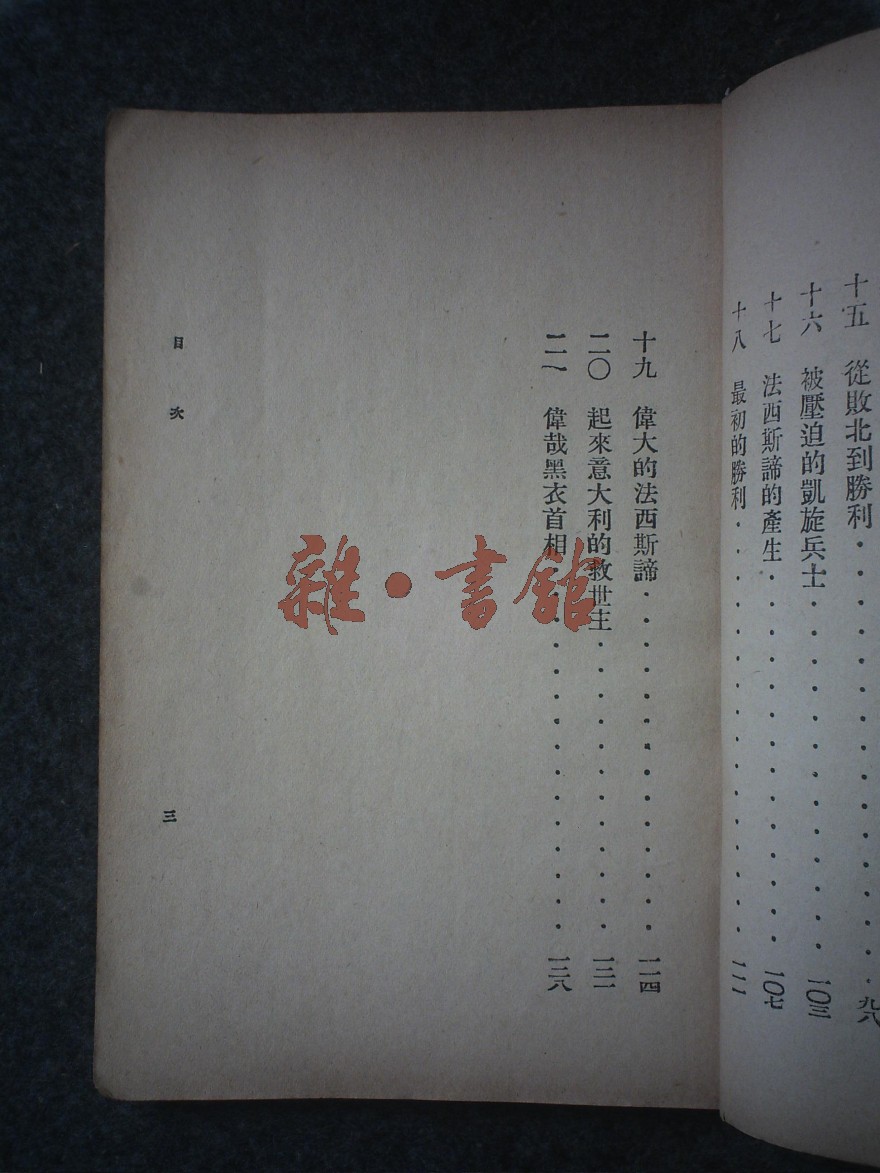 十五 從敗北到勝利 九八
十六 被壓迫的凱旋兵士 一〇三
十七 法西斯諦的產生 一〇七
十八 最初的勝利 一一一
十九 偉大的法西斯諦 一一四
二〇 起來意大利的救世主 一二一
二一 偉哉黑衣首相 一二八
目次
三
雜·書館